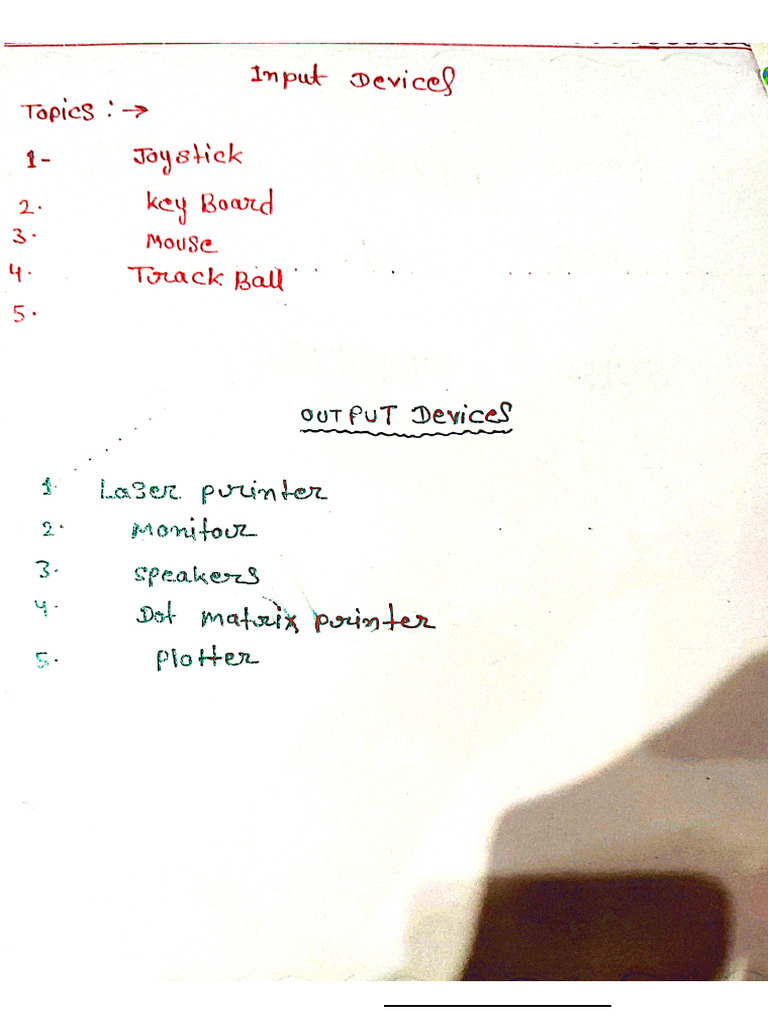 Input Devices
Topics : →
1- Joystick
2. Key Board
3. Mouse
4. Track Ball
5.
OUTPUT Devices
1. La3er printer
2. Monitor
3. Speakers
4. Dot matrix printer
5. Plotter